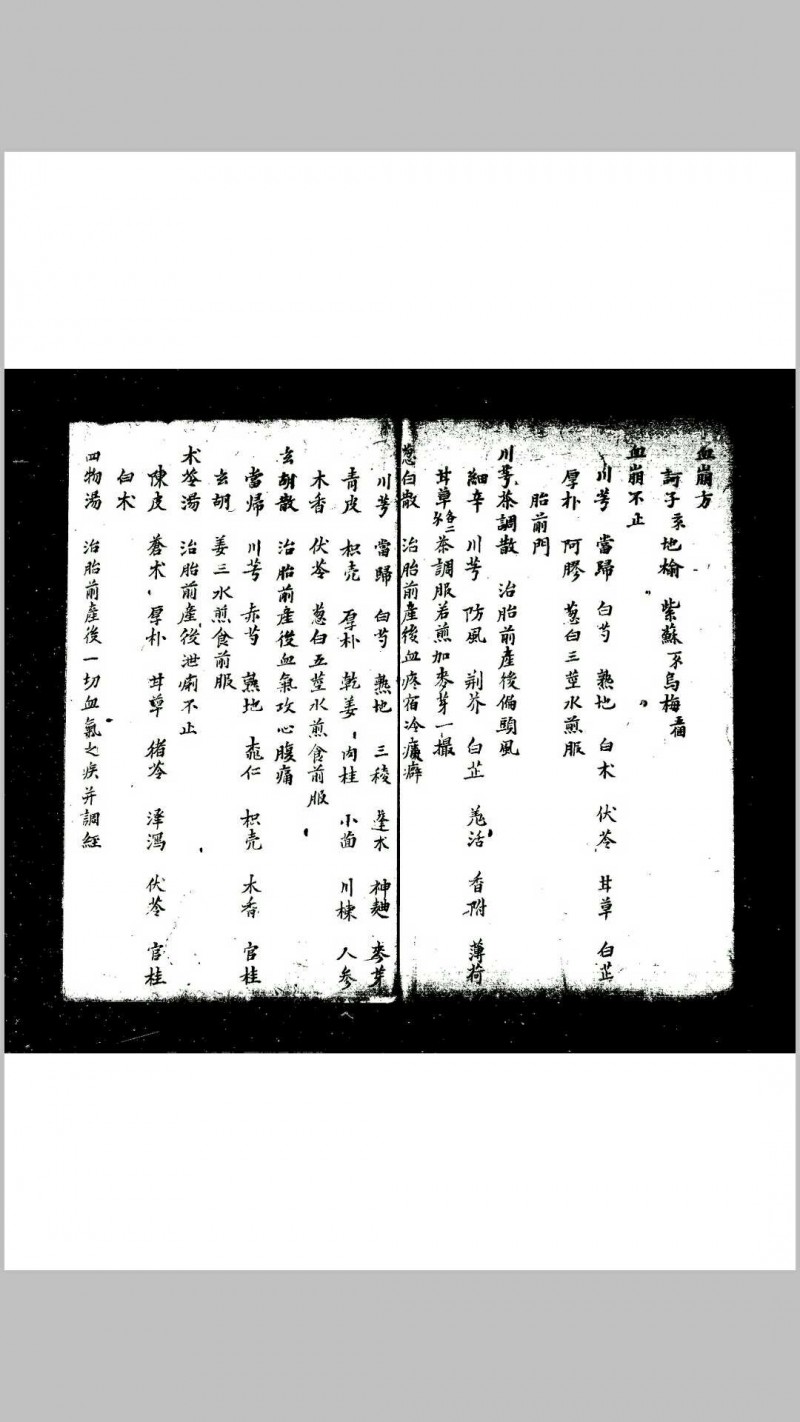 血崩方
訶子 地榆 紫蘇 烏梅
血崩不止
川芎 當歸 白芍 熟地 白术 伏苓 甘草 白芷
厚朴 阿膠 葱白三莖水煎服
胎前門
川芎茶調散 治胎前產後偏頭風
細辛 川芎 防風 荆芥 白芷 羗活 香附 薄荷
甘草 各二 茶調服若煎加麥芽一撮
葱白散 治胎前產後血疼宿冷癖
川芎 當歸 白芍 熟地 三稜 蓬术 神麯 麥芽
青皮 枳壳 厚朴 乾姜 肉桂 小茴 川楝 人参
木香 伏苓 葱白五莖水煎食前服
玄胡散 治胎前產後血氣攻心腹痛
當㱕 川芎 赤芍 熟地 桃仁 枳壳 木香 官桂
玄胡 姜三水煎食前服
术苓湯 治胎前產後泄痢不止
陳皮 蒼术 厚朴 甘草 猪苓 澤瀉 伏苓 官桂
白术
四物湯 治胎前產後一切血氣之疾并調經